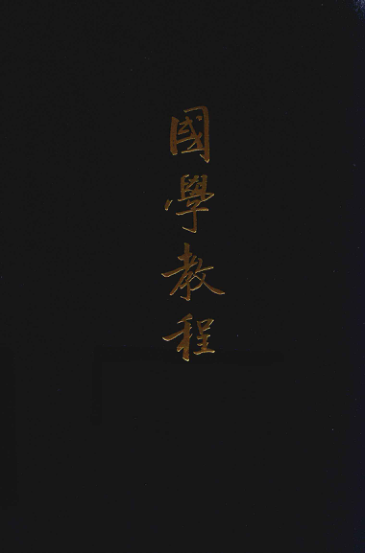 國學教程